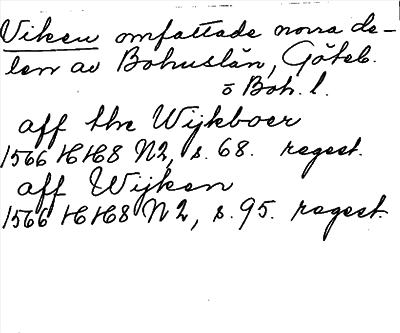 Viken omfattade norra de-
len av Bohuslän, Göteb.
o Boh. l.
aff the Wijkboer
1566 HH8 N2, s. 68. regest.
aff Wijken
1566 HH8 N2, s. 95. regest.